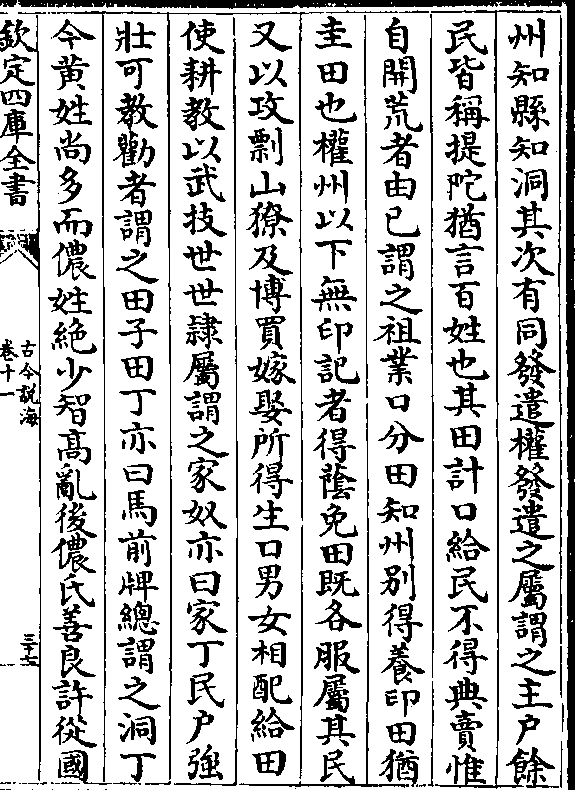 州知縣知洞其次有同發遣權發遣之屬謂之主户餘
民皆稱提陀猶言百姓也其田計口給民不得典賣惟
自開荒者由已謂之祖業口分田知州别得養印田猶
圭田也權州以下無印記者得蔭免田既各服屬其民
又以攻剽山獠及博買嫁娶所得生口男女相配給田
使耕教以武技世世隷屬謂之家奴亦曰家丁民户強
壯可教勸者謂之田子田丁亦曰馬前牌總謂之洞丁
今黄姓尚多而儂姓絶少智髙亂後儂氏善良許從國
欽定四庫全書
古今説海
卷十一
三十七